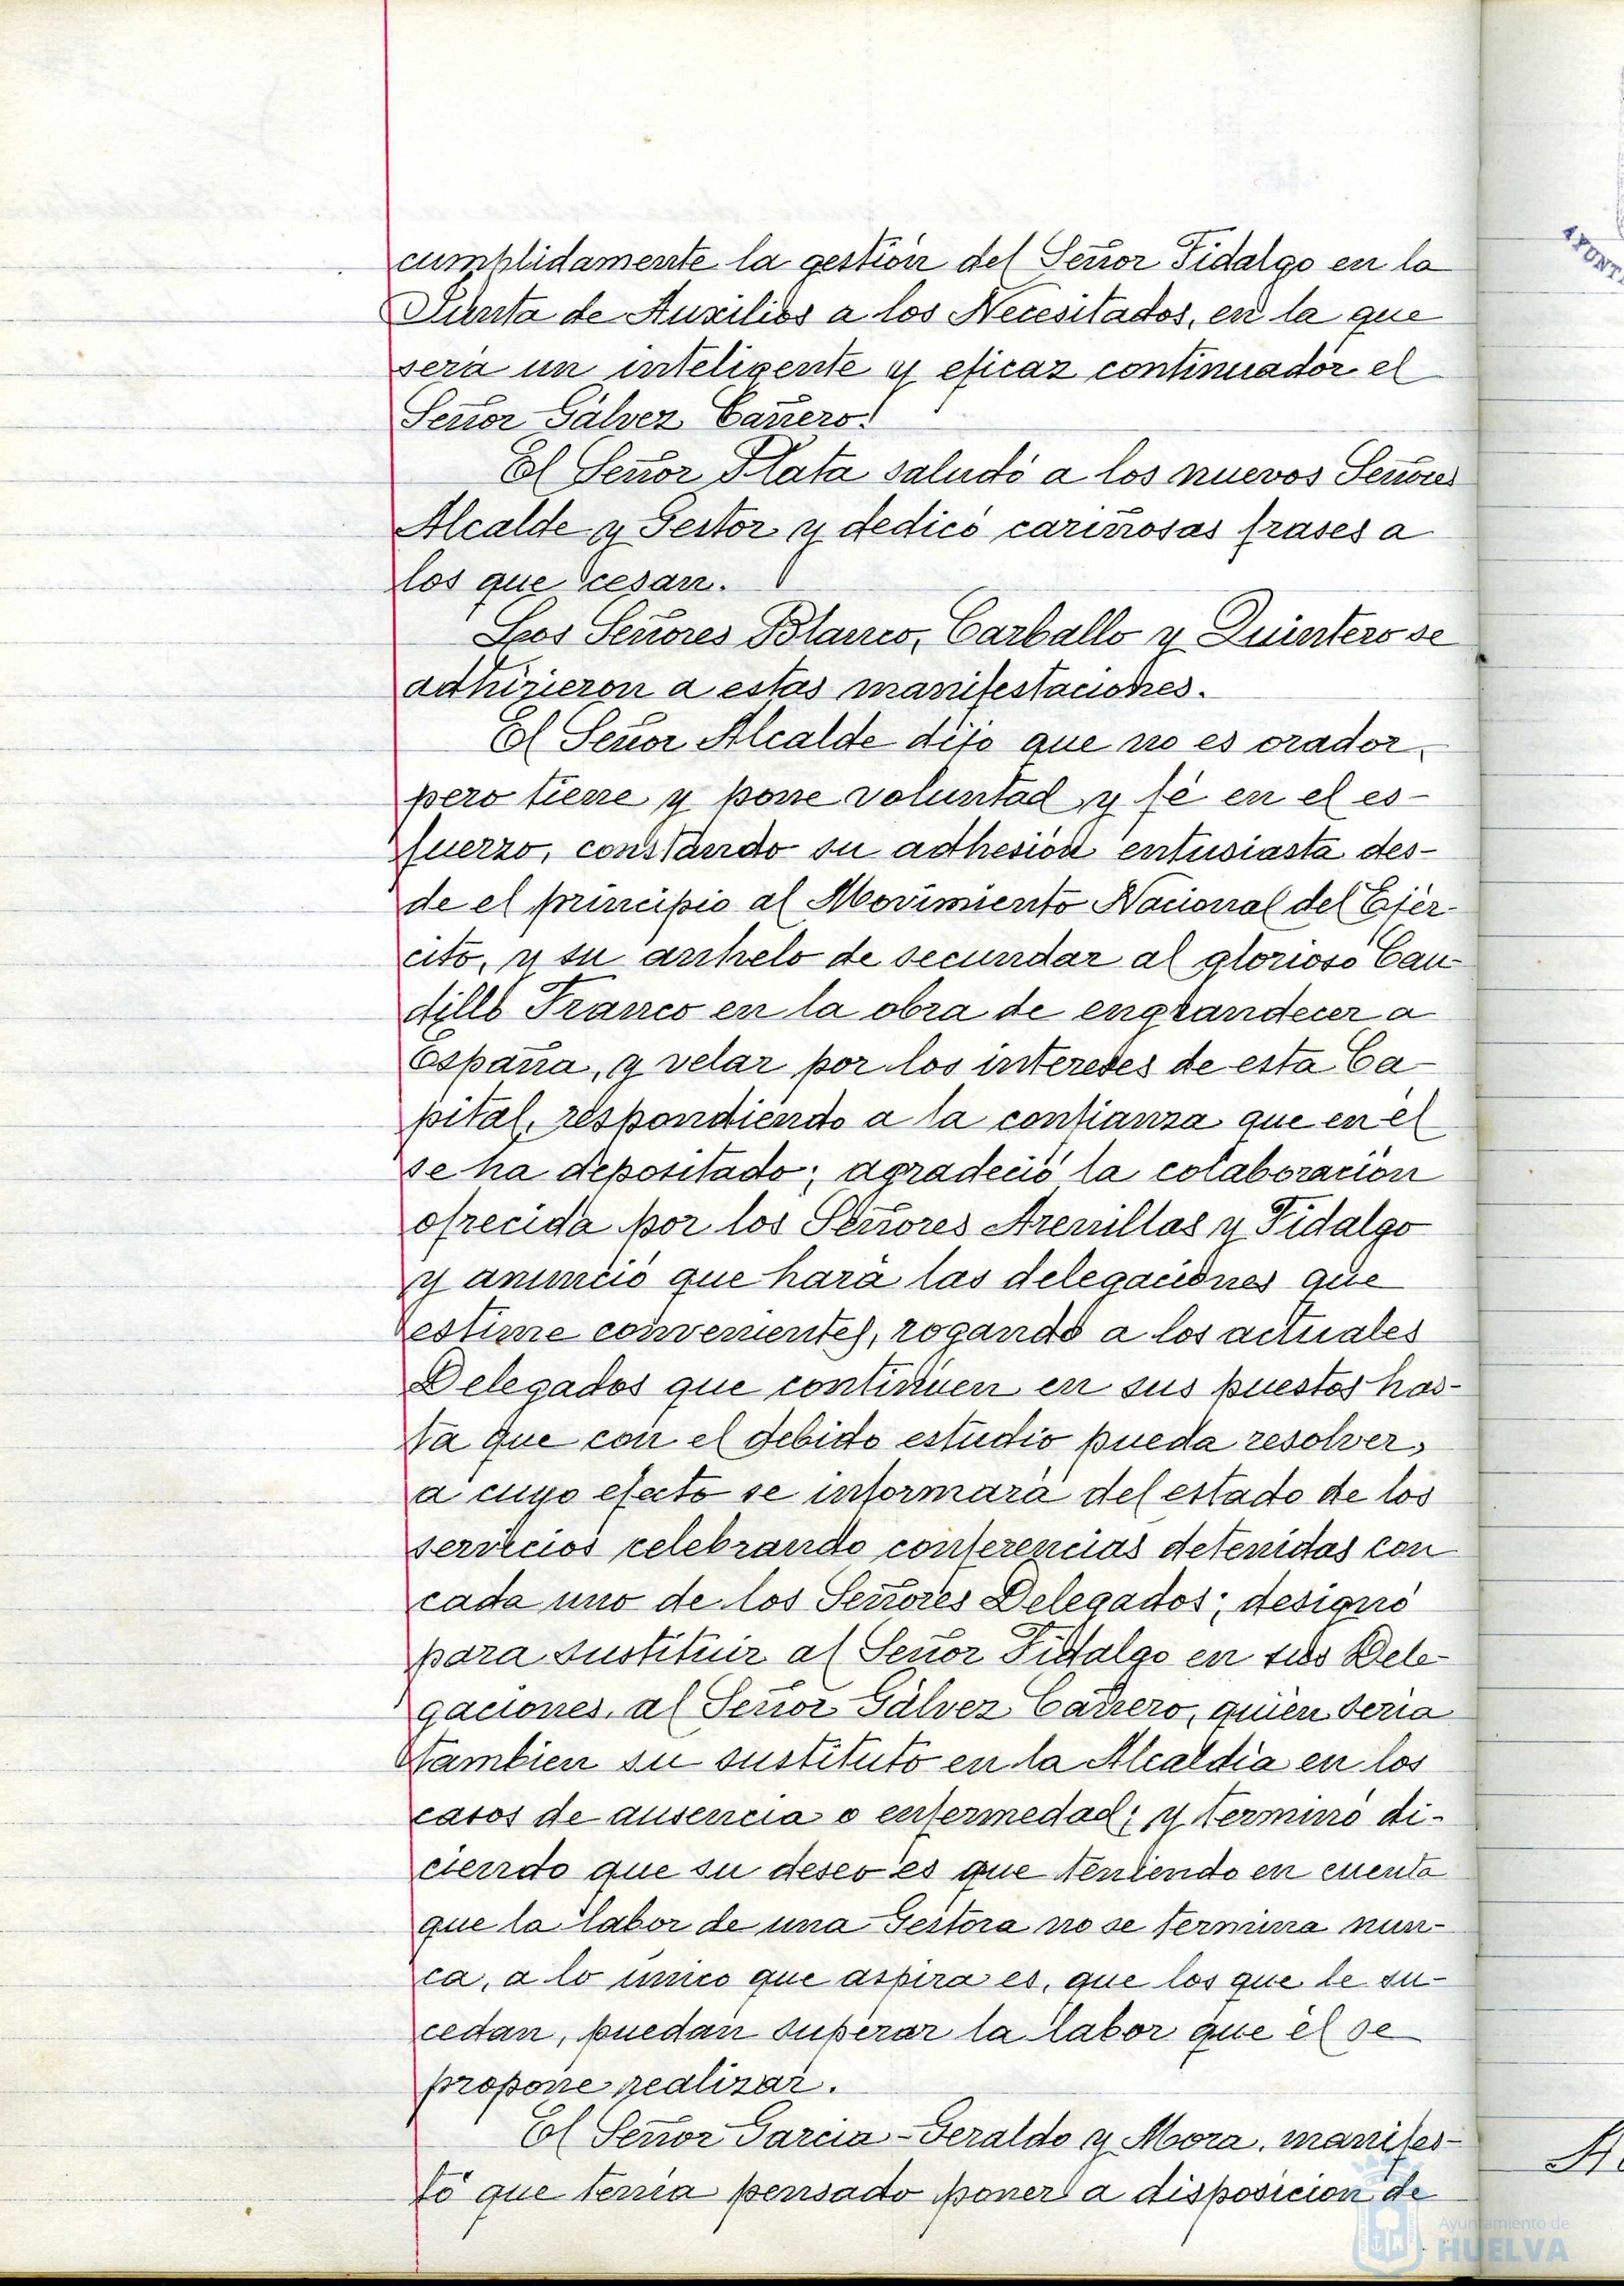 cumplidamente la gestión del Señor Fidalgo en la
Junta de Auxilios a los Necesitados, en la que
será un inteligente y eficaz continuador el
Señor Gálvez Cañero.
El Señor Plata saludó a los nuevos Señores
Alcalde y Gestor y dedicó cariñosas frases a
los que cesan.
Los Señores Blanco, Carballo y Quintero se
adhirieron a estas manifestaciones.
El Señor Alcalde dijo que no es orador,
pero tiene y pone voluntad y fé en el es-
fuerzo, constando su adhesión entusiasta des-
de el principio al Movimiento Nacional del Ejér-
cito, y su anhelo de secundar al glorioso Cau-
dillo Franco en la obra de engrandecer a
España, y velar por los intereses de esta Ca-
pital, respondiendo a la confianza que en él
se ha depositado; agradeció la colaboración
ofrecida por los Señores Arenillas y Fidalgo
y anunció que hará las delegaciones que
estime convenientes, rogando a los actuales
Delegados que continúen en sus puestos has-
ta que con el debido estudio pueda resolver,
a cuyo efecto se informará del estado de los
servicios celebrando conferencias detenidas con
cada uno de los Señores Delegados; designó
para sustituir al Señor Fidalgo en sus Dele-
gaciones, al Señor Gálvez Cañero, quien sería
tambien su sustituto en la Alcaldía en los
casos de ausencia o enfermedad; y terminó di-
ciendo que su deseo es que teniendo en cuenta
que la labor de una Gestora no se termina nun-
ca, a lo único que aspira es, que los que le su-
cedan, puedan superar la labor que él se
propone realizar.
El Señor Garcia-Geraldo y Mora, manifes-
tó que tenía pensado poner a disposición de
AYUNT
Ayuntamiento de
HUELVA